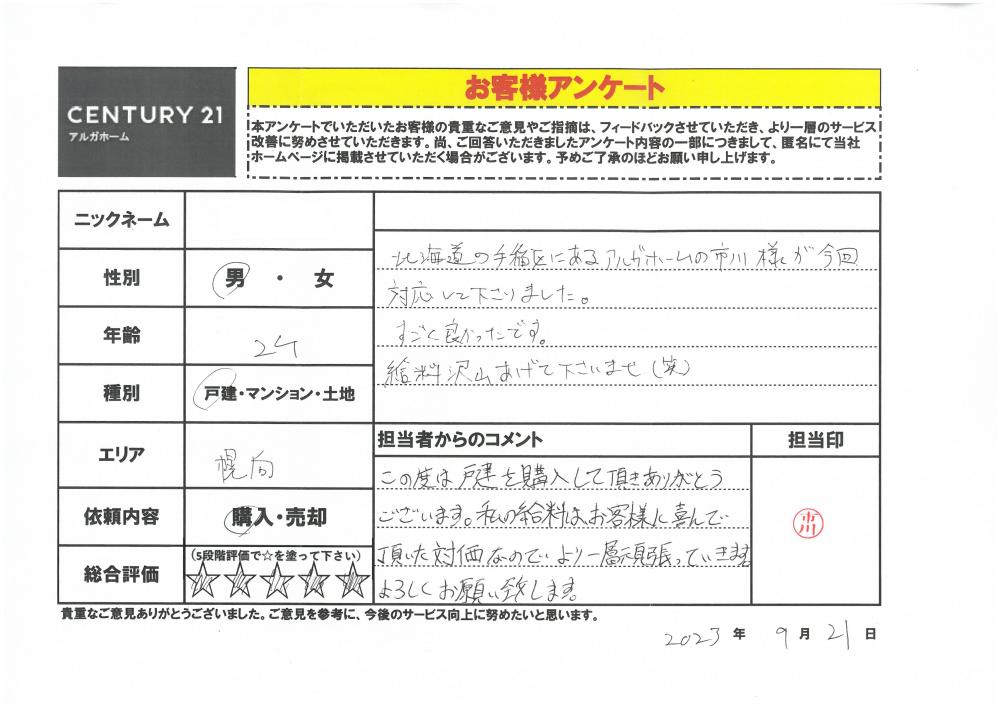 CENTURY 21
アルガホーム
お客様アンケート
本アンケートでいただいたお客様の貴重なご意見やご指摘は、フィードバックさせていただき、より一層のサービス
改善に努めさせていただきます。尚、ご回答いただきましたアンケート内容の一部につきまして、匿名にて当社
ホームページに掲載させていただく場合がございます。予めご了承のほどお願い申し上げます。
ニックネーム
性別
男 ・ 女
年齢
24
種別
戸建・マンション・土地
エリア
幌向
依頼内容
購入・売却
総合評価
(5段階評価で☆を塗って下さい)
☆☆☆☆☆
北海道の手稲区にあるアルガホームの市川様が今回
対応して下さりました。
すごく良かったです。
給料沢山あげて下さいませ(笑)
担当者からのコメント
この度は戸建を購入して頂きありがとう
ございます。私の給料は、お客様に喜んで
頂いた対価なので、より一層頑張っていきます。
よろしくお願い致します。
担当印
市川
貴重なご意見ありがとうございました。ご意見を参考に、今後のサービス向上に努めたいと思います。
2023 年 9 月 21 日